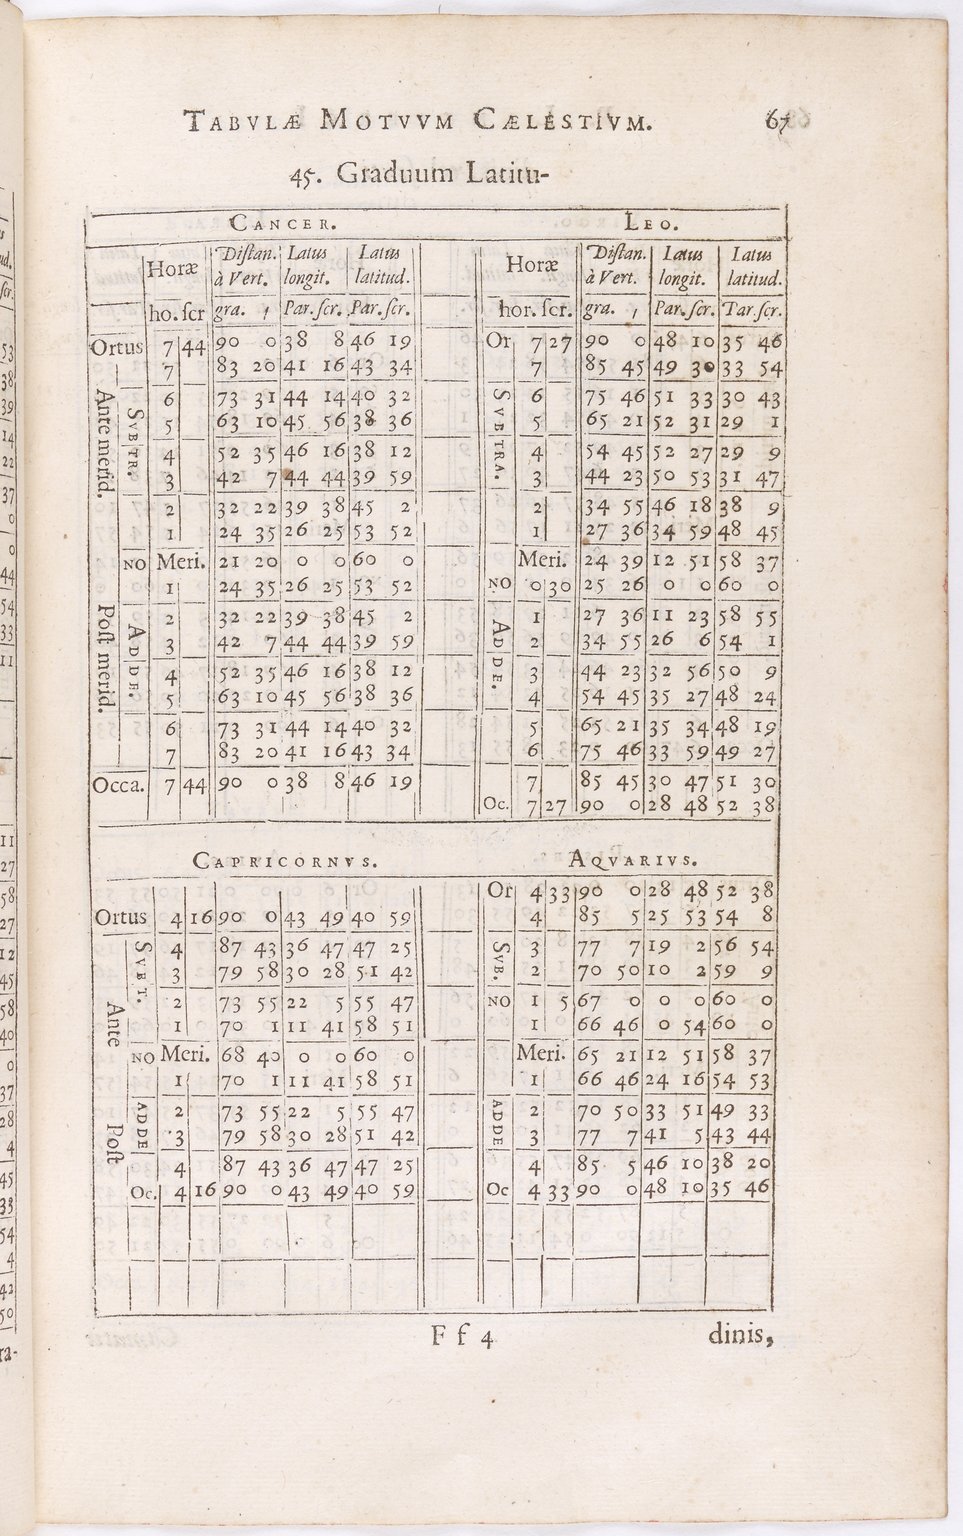 TABVLÆ MOTVVM CÆLESTIVM. 67
45. Graduum Latitu-
CANCER. LEO.
Horæ Distan. à Vert. Latus longit. Latus latitud. Horæ Distan. à Vert. Latus longit. Latus latitud.
ho. scr gra. , Par. scr. Par. scr. hor. scr. gra. , Par. scr. Par. scr.
Ortus 7 44 90 0 38 8 46 19 Or 7 27 90 0 48 10 35 46
7 83 20 41 16 43 34 7 85 45 49 30 33 54
Ante merid. SVBTR. 6 73 31 44 14 40 32 SVBTRA. 6 75 46 51 33 30 43
5 63 10 45 56 38 36 5 65 21 52 31 29 1
4 52 35 46 16 38 12 4 54 45 52 27 29 9
3 42 7 44 44 39 59 3 44 23 50 53 31 47
2 32 22 39 38 45 2 2 34 55 46 18 38 9
1 24 35 26 25 53 52 1 27 36 34 59 48 45
NO Meri. 21 20 0 0 60 0 Meri. 24 39 12 51 58 37
1 24 35 26 25 53 52 NO 0 30 25 26 0 0 60 0
Post merid. ADDE. 2 32 22 39 38 45 2 ADDE. 1 27 36 11 23 58 55
3 42 7 44 44 39 59 2 34 55 26 6 54 1
4 52 35 46 16 38 12 3 44 23 32 56 50 9
5 63 10 45 56 38 36 4 54 45 35 27 48 24
6 73 31 44 14 40 32 5 65 21 35 34 48 19
7 83 20 41 16 43 34 6 75 46 33 59 49 27
Occa. 7 44 90 0 38 8 46 19 7 85 45 30 47 51 30
Oc. 7 27 90 0 28 48 52 38
CAPRICORNVS. AQVARIVS.
Or 4 33 90 0 28 48 52 38
Ortus 4 16 90 0 43 49 40 59 4 85 5 25 53 54 8
Ante SVBT. 4 87 43 36 47 47 25 SVB. 3 77 7 19 2 56 54
3 79 58 30 28 51 42 2 70 50 10 2 59 9
2 73 55 22 5 55 47 NO 1 5 67 0 0 0 60 0
1 70 1 11 41 58 51 1 66 46 0 54 60 0
NO Meri. 68 40 0 0 60 0 Meri. 65 21 12 51 58 37
1 70 1 11 41 58 51 1 66 46 24 16 54 53
Post ADDE 2 73 55 22 5 55 47 ADDE 2 70 50 33 51 49 33
3 79 58 30 28 51 42 3 77 7 41 5 43 44
4 87 43 36 47 47 25 4 85 5 46 10 38 20
Oc. 4 16 90 0 43 49 40 59 Oc 4 33 90 0 48 10 35 46
F f 4 dinis,